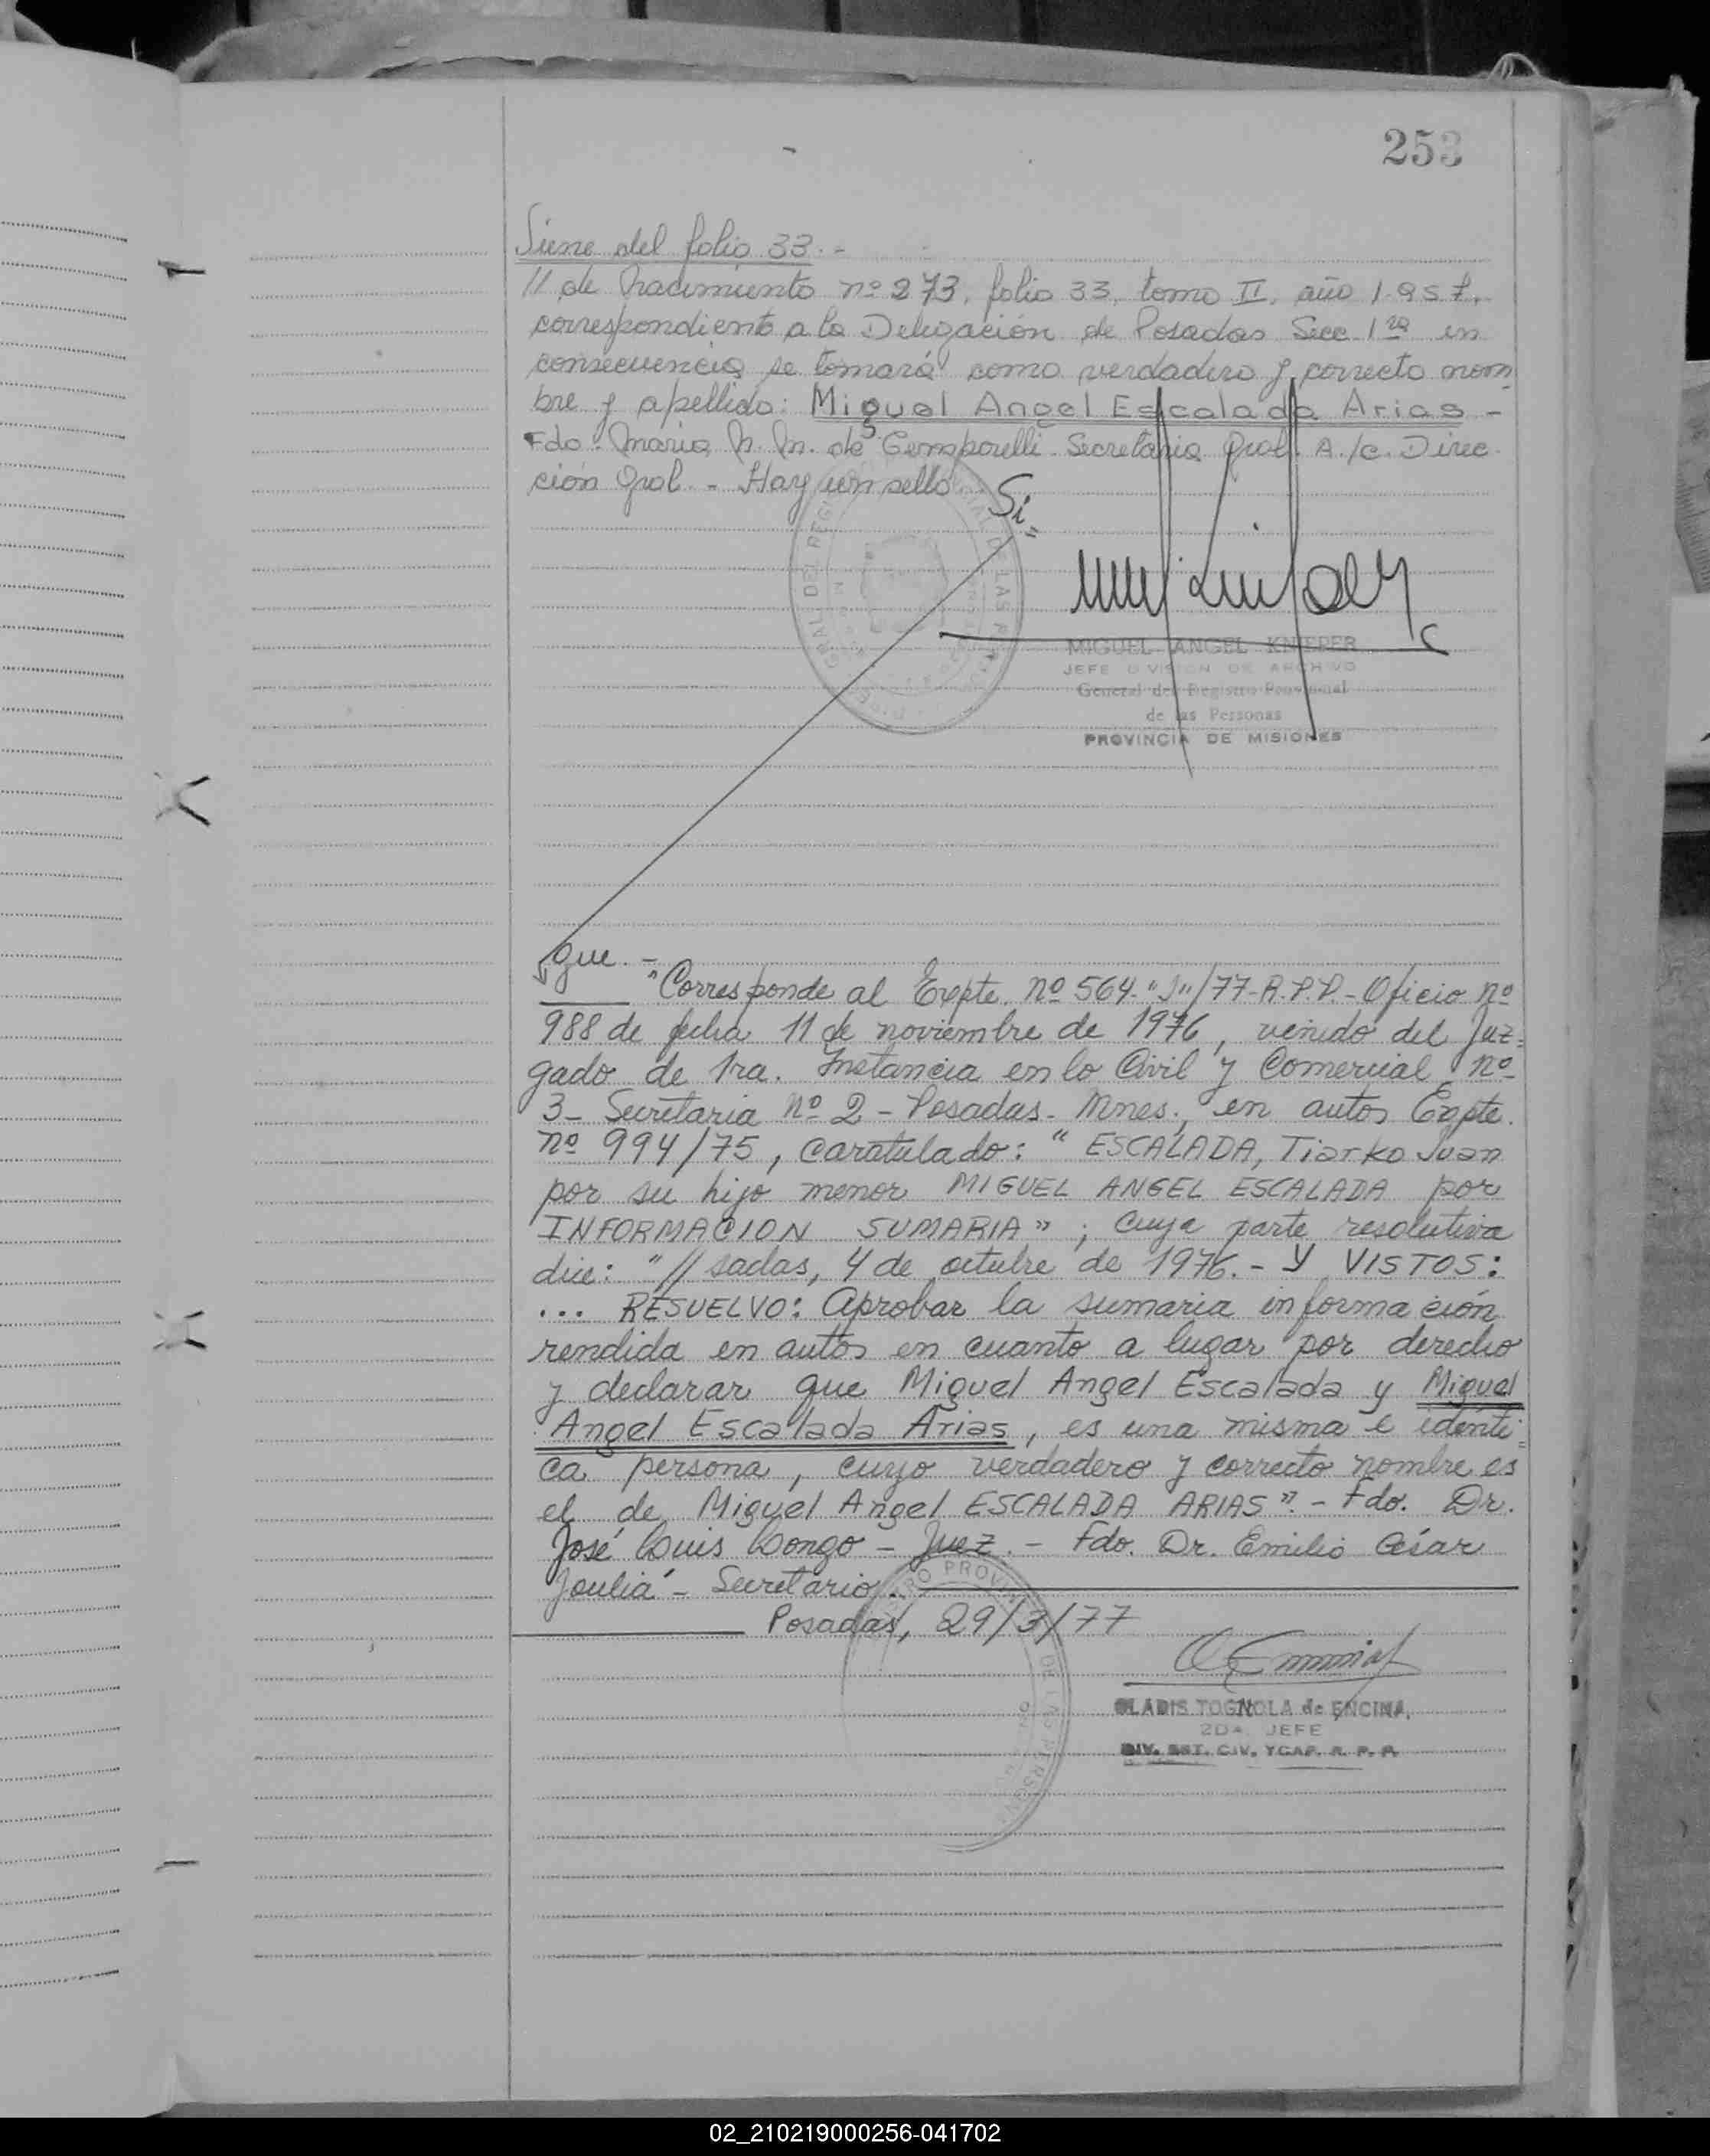 253
Viene del folio 33.-
// de Nacimiento nº 273, folio 33, tomo II, año 1.957,
correspondiente a la Delegación de Posadas Secc 1ra en
consecuencia se tomará como verdadero y correcto nom
bre y apellido: Miguel Angel Escalada Arias -
Fdo: Maria N. M. de Gemporelli Secretaria Gral. A./c. Direc
ción Gral. - Hay un sello. - Si,,
MIGUEL ANGEL KNIEPER
JEFE DIVISION DE ARCHIVO
General del Registro Provincial
de las Personas
PROVINCIA DE MISIONES
gue. -
"Corresponde al Expte. nº 564-"J"/77-R.P.P.-Oficio nº
988 de fecha 11 de noviembre de 1976, venido del Juz=
gado de 1ra. Instancia en lo Civil y Comercial nº
3- Secretaria nº 2 - Posadas - Mnes., en autos Expte.
nº 994/75, caratulado: " ESCALADA, Tiarko Juan
por su hijo menor MIGUEL ANGEL ESCALADA por
INFORMACION SUMARIA" ; cuya parte resolutiva
dice: "// sadas, 4 de octubre de 1976.- Y VISTOS:
... RESUELVO: Aprobar la sumaria información
rendida en autos en cuanto a lugar por derecho
y declarar que Miguel Angel Escalada y Miguel
Angel Escalada Arias, es una misma e identi=
ca persona, cuyo verdadero y correcto nombre es
el de Miguel Angel ESCALADA ARIAS". - Fdo. Dr.
José Luis Longo - Juez. - Fdo. Dr. Emilio César
Joulia - Secretario.
Posadas, 29/3/77
GLADIS TOGNOLA de ENCINA
2DA. JEFE
DIV. EST. CIV. YCAP. R. P. P.
02_210219000256-041702